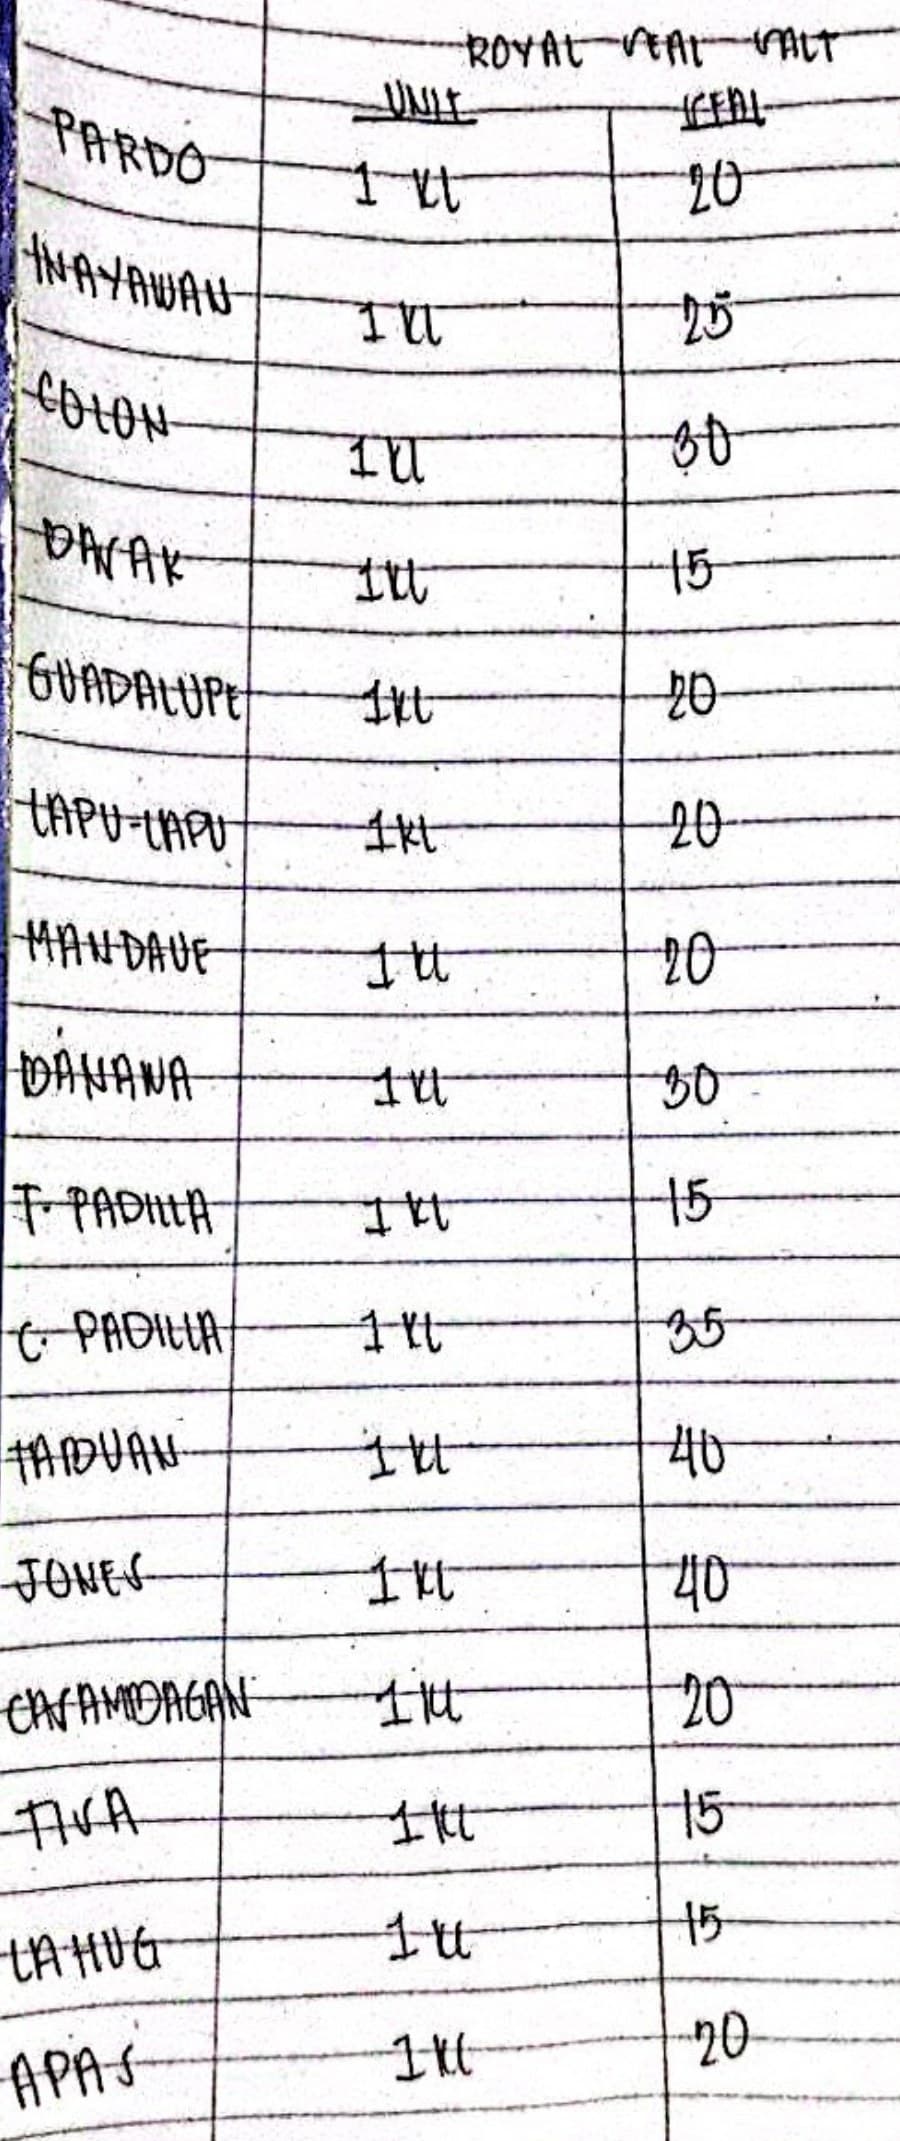 ROYAL SEAL SALT
UNIT
PARDO 1 KL 20
INAYAWAN 1 KL 25
COLON 1 KL 30
BASAK 1 KL 15
GUADALUPE 1 KL 20
LAPU-LAPU 1 KL 20
MANDAUE 1 KL 20
BANAWA 1 KL 30
T. PADILLA 1 KL 15
C. PADILLA 1 KL 35
TABUAN 1 KL 40
JONES 1 KL 40
CASAMBAGAN 1 KL 20
TISA 1 KL 15
LAHUG 1 KL 15
APAS 1 KL 20